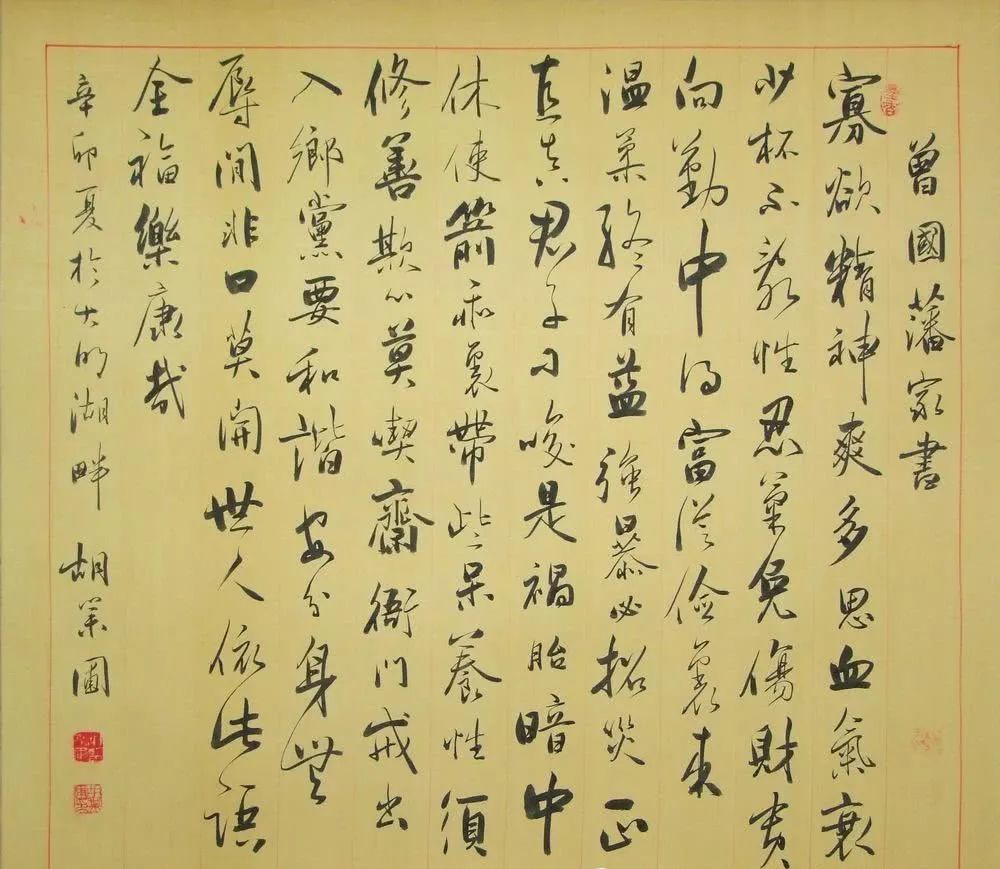 曾國藩家書
寡欲精神爽多思血氣衰
少杯不亂性忍氣免傷財貴
向勤中得富從儉裏來
溫柔終有益強暴必招災正
直真君子刁唆是禍胎暗中
休使箭乖裏帶些呆養性須
修善欺心莫喫齋衙門戒出
入鄉黨要和諧安分身無
辱閒非口莫開世人依此語
全福樂康哉
辛卯夏於大明湖畔 胡業圃